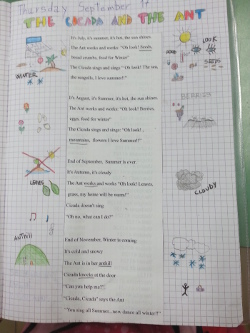 Thursday September 17
THE CICADA AND THE ANT
It's July, it's summer, it's hot, the sun shines
The Ant works and works: "Oh look! Seeds,
bread crumbs, food for Winter"
The Cicada sings and sings: "Oh look! The sea,
the seagulls, I love summer!"
LOOK
SEEDS
WINTER
It's August, it's Summer, it's hot, the sun shines
The Ant works and works: "Oh look! Berries,
eggs, food for winter"
The Cicada sings and sings: "Oh look!
mountains, flowers I love Summer!"
BERRIES
End of September, Summer is over
It's Autumn, it's cloudy
The Ant works and works: "Oh look! Leaves,
grass, my house will be warm!"
Cicada doesn't sing
"Oh no, what can I do?"
LEAVES
CLOUDY
ANTHILL
End of December, Winter is coming
It's cold and snowy
The Ant is in her anthill
Cicada knocks at the door
"Can you help me?"
"Cicada, Cicada" says the Ant
"You sing all Summer, now dance all winter!"